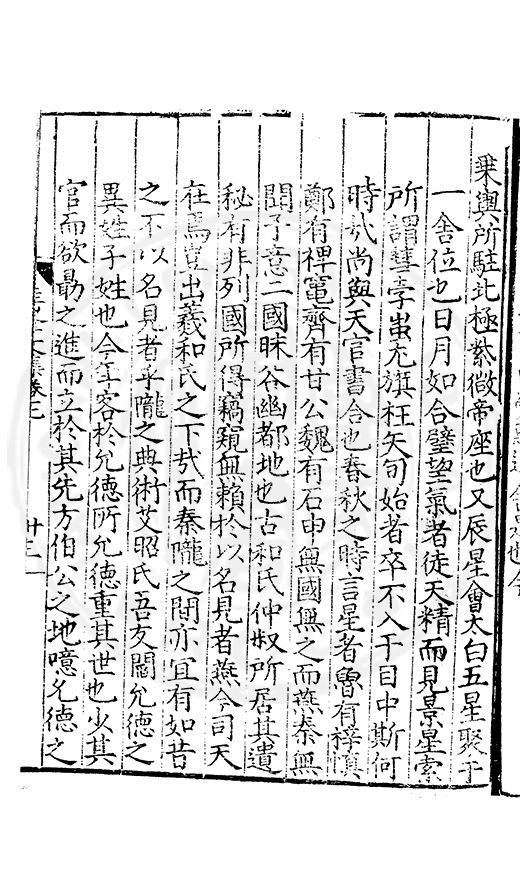 乗輿所駐北極紫微帝座也又辰星會太白五星聚于
一舎位也日月如合璧望氣者徒天精而見景星索
所謂彗孛蚩尤旗枉矢旬始者卒不入于目中斯何
時㢤尚與天官書合也春秋之時言星者魯有梓慎
鄭有禆竈齊有甘公魏有石申無國無之而燕秦無
聞予意二國昧谷幽都地也古和氏仲叔所居其遺
秘有非列國所得竊窺無賴於以名見者燕今司天
在焉豈出羲和氏之下㢤而秦隴之間亦宜有如昔
之不以名見者乎隴之典術艾昭氏吾友閻允德之
異姓子姓也今年客於允德所允德重其世也少其
官而欲勗之進而立於其先方伯公之地噫允德之
文集卷三
廿三